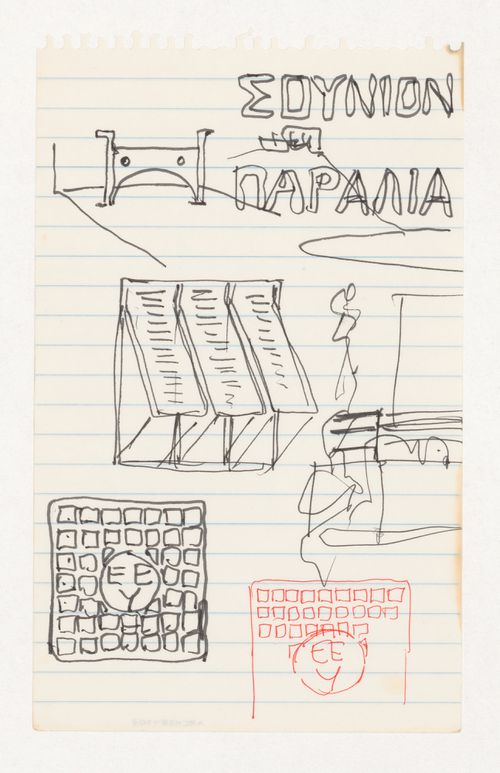 ΣΟΥΝΙΟΝ
ΠΑΡΑΛΙΑ
ΕΕ
Υ
ΕΕ
Υ